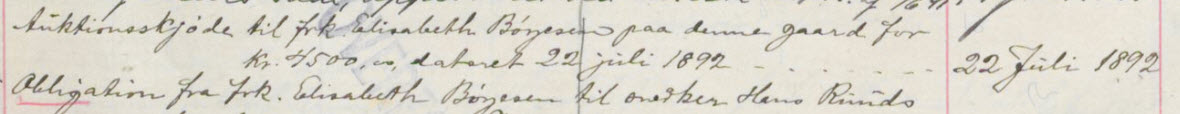 Auktionsskjøde til frk. Elisabeth Börgesen paa denne gaard for
Kr. 4500,00, dateret 22 juli 1892 - - - - - - - 22 Juli 1892
Obligation fra frk. Elisabeth Börgesen til snedker Hans Ruuds